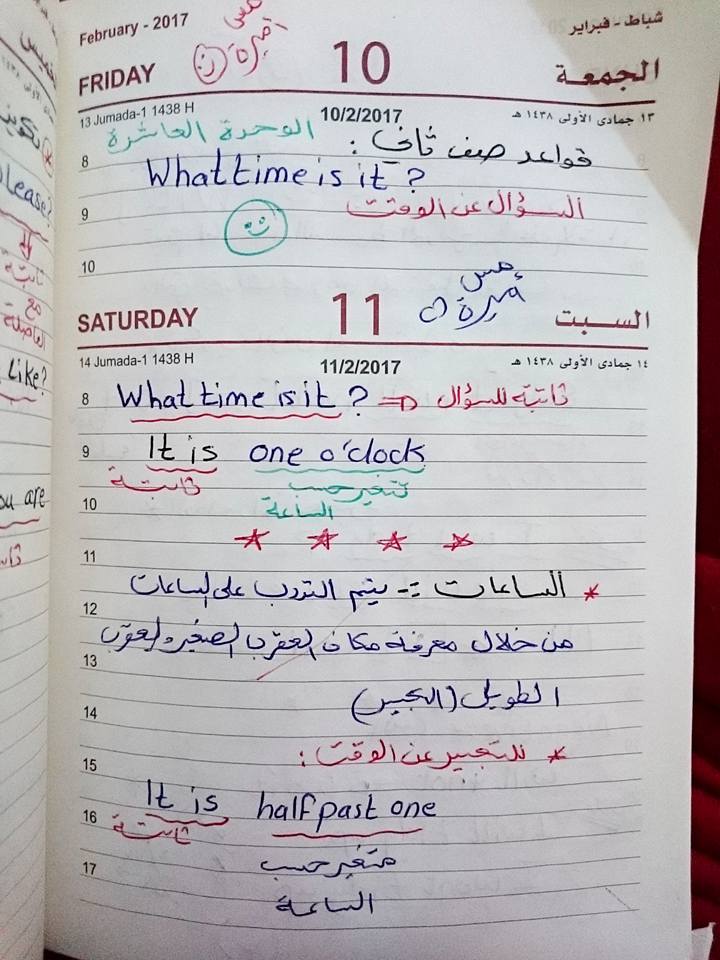 February - 2017
مس
أميرة
شباط - فبراير
FRIDAY 10 الجمعة
13 Jumada-1 1438 H 10/2/2017 ١٣ جمادى الأولى ١٤٣٨ هـ
الوحدة العاشرة
قواعد صف ثاني :
8
What time is it ?
9
السؤال عن الوقت
10
مس
أميرة
SATURDAY 11 السبت
14 Jumada-1 1438 H 11/2/2017 ١٤ جمادى الأولى ١٤٣٨ هـ
8 What time is it ? ⇒ ثابتة للسؤال
9 It is one o'clock
ثابتة تتغير حسب
10 الساعة
11
* الساعات :- يتم التدرب على الساعات
12
من خلال معرفة مكان العقرب الصغير والعقرب
13
الطويل (الكبير)
14
* للتعبير عن الوقت :
15
It is half past one
16 ثابتة
17 متغير حسب
الساعة
الخميس
تكوين
please?
ثابتة
مع
العاصلة
Like?
you are